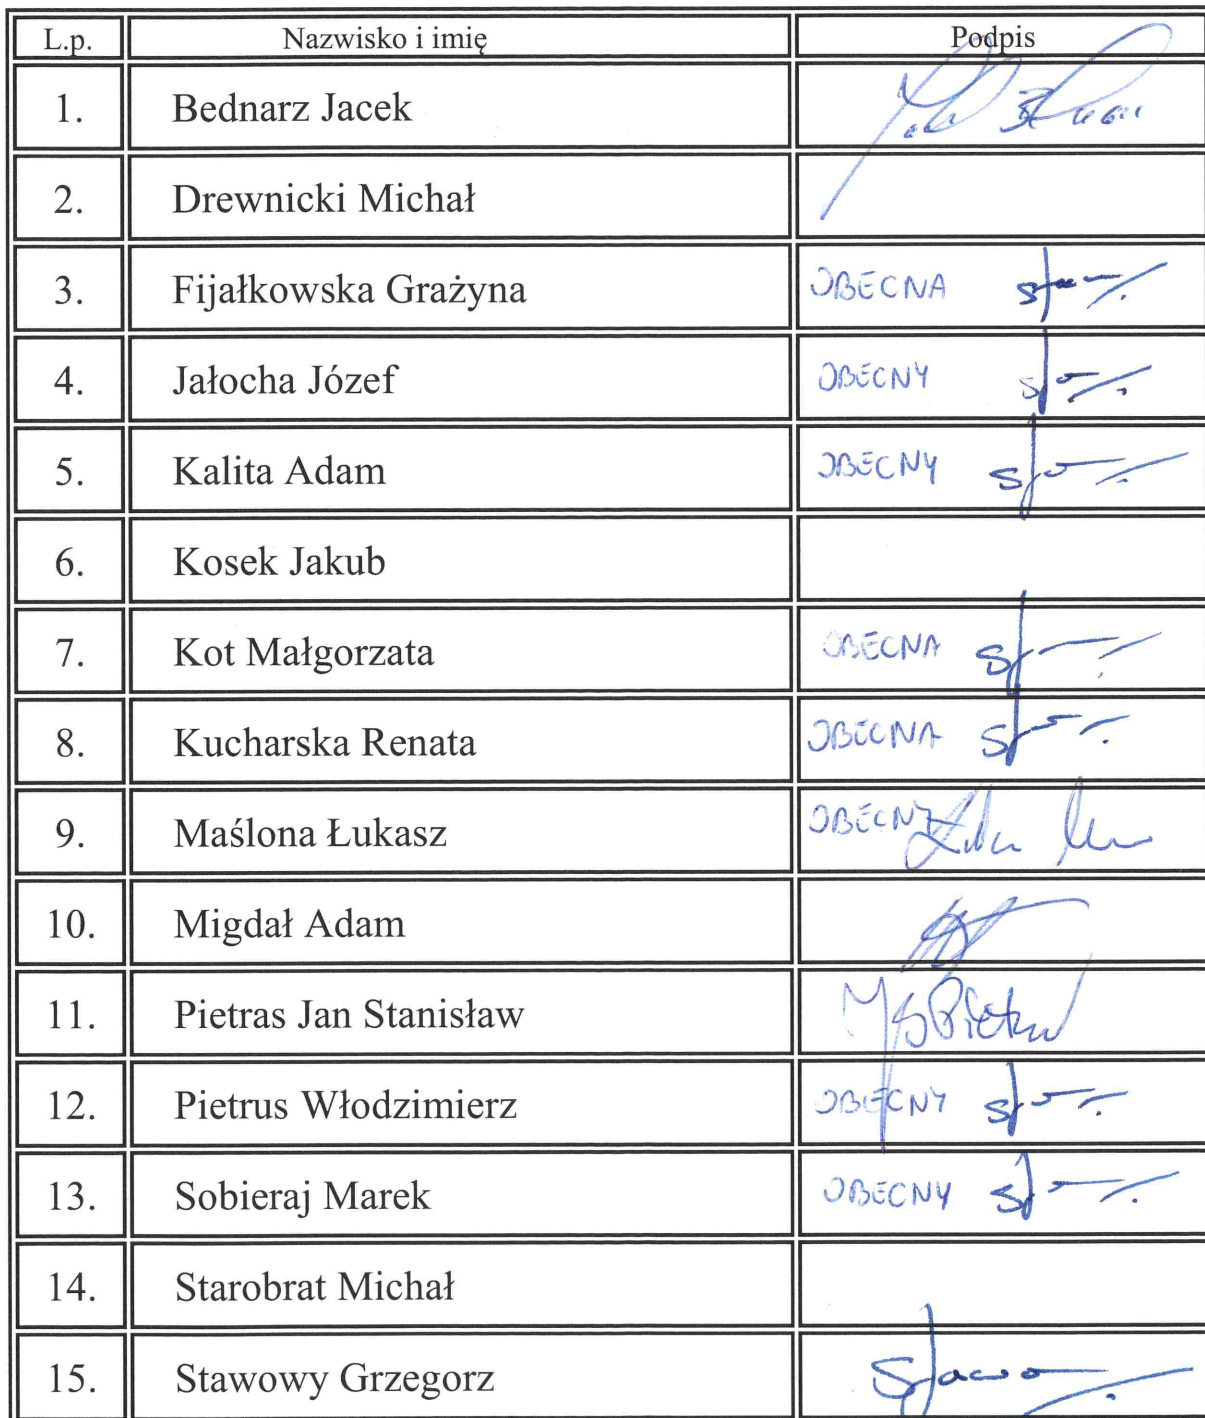 L.p. Nazwisko i imię Podpis
1. Bednarz Jacek
2. Drewnicki Michał
3. Fijałkowska Grażyna OBECNA
4. Jałocha Józef OBECNY
5. Kalita Adam OBECNY
6. Kosek Jakub
7. Kot Małgorzata OBECNA
8. Kucharska Renata OBECNA
9. Maślona Łukasz OBECNY
10. Migdał Adam
11. Pietras Jan Stanisław
12. Pietrus Włodzimierz OBECNY
13. Sobieraj Marek OBECNY
14. Starobrat Michał
15. Stawowy Grzegorz